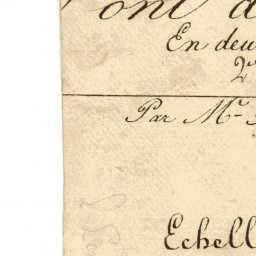 Pont d
En deu
2
Par Mr.
Echell